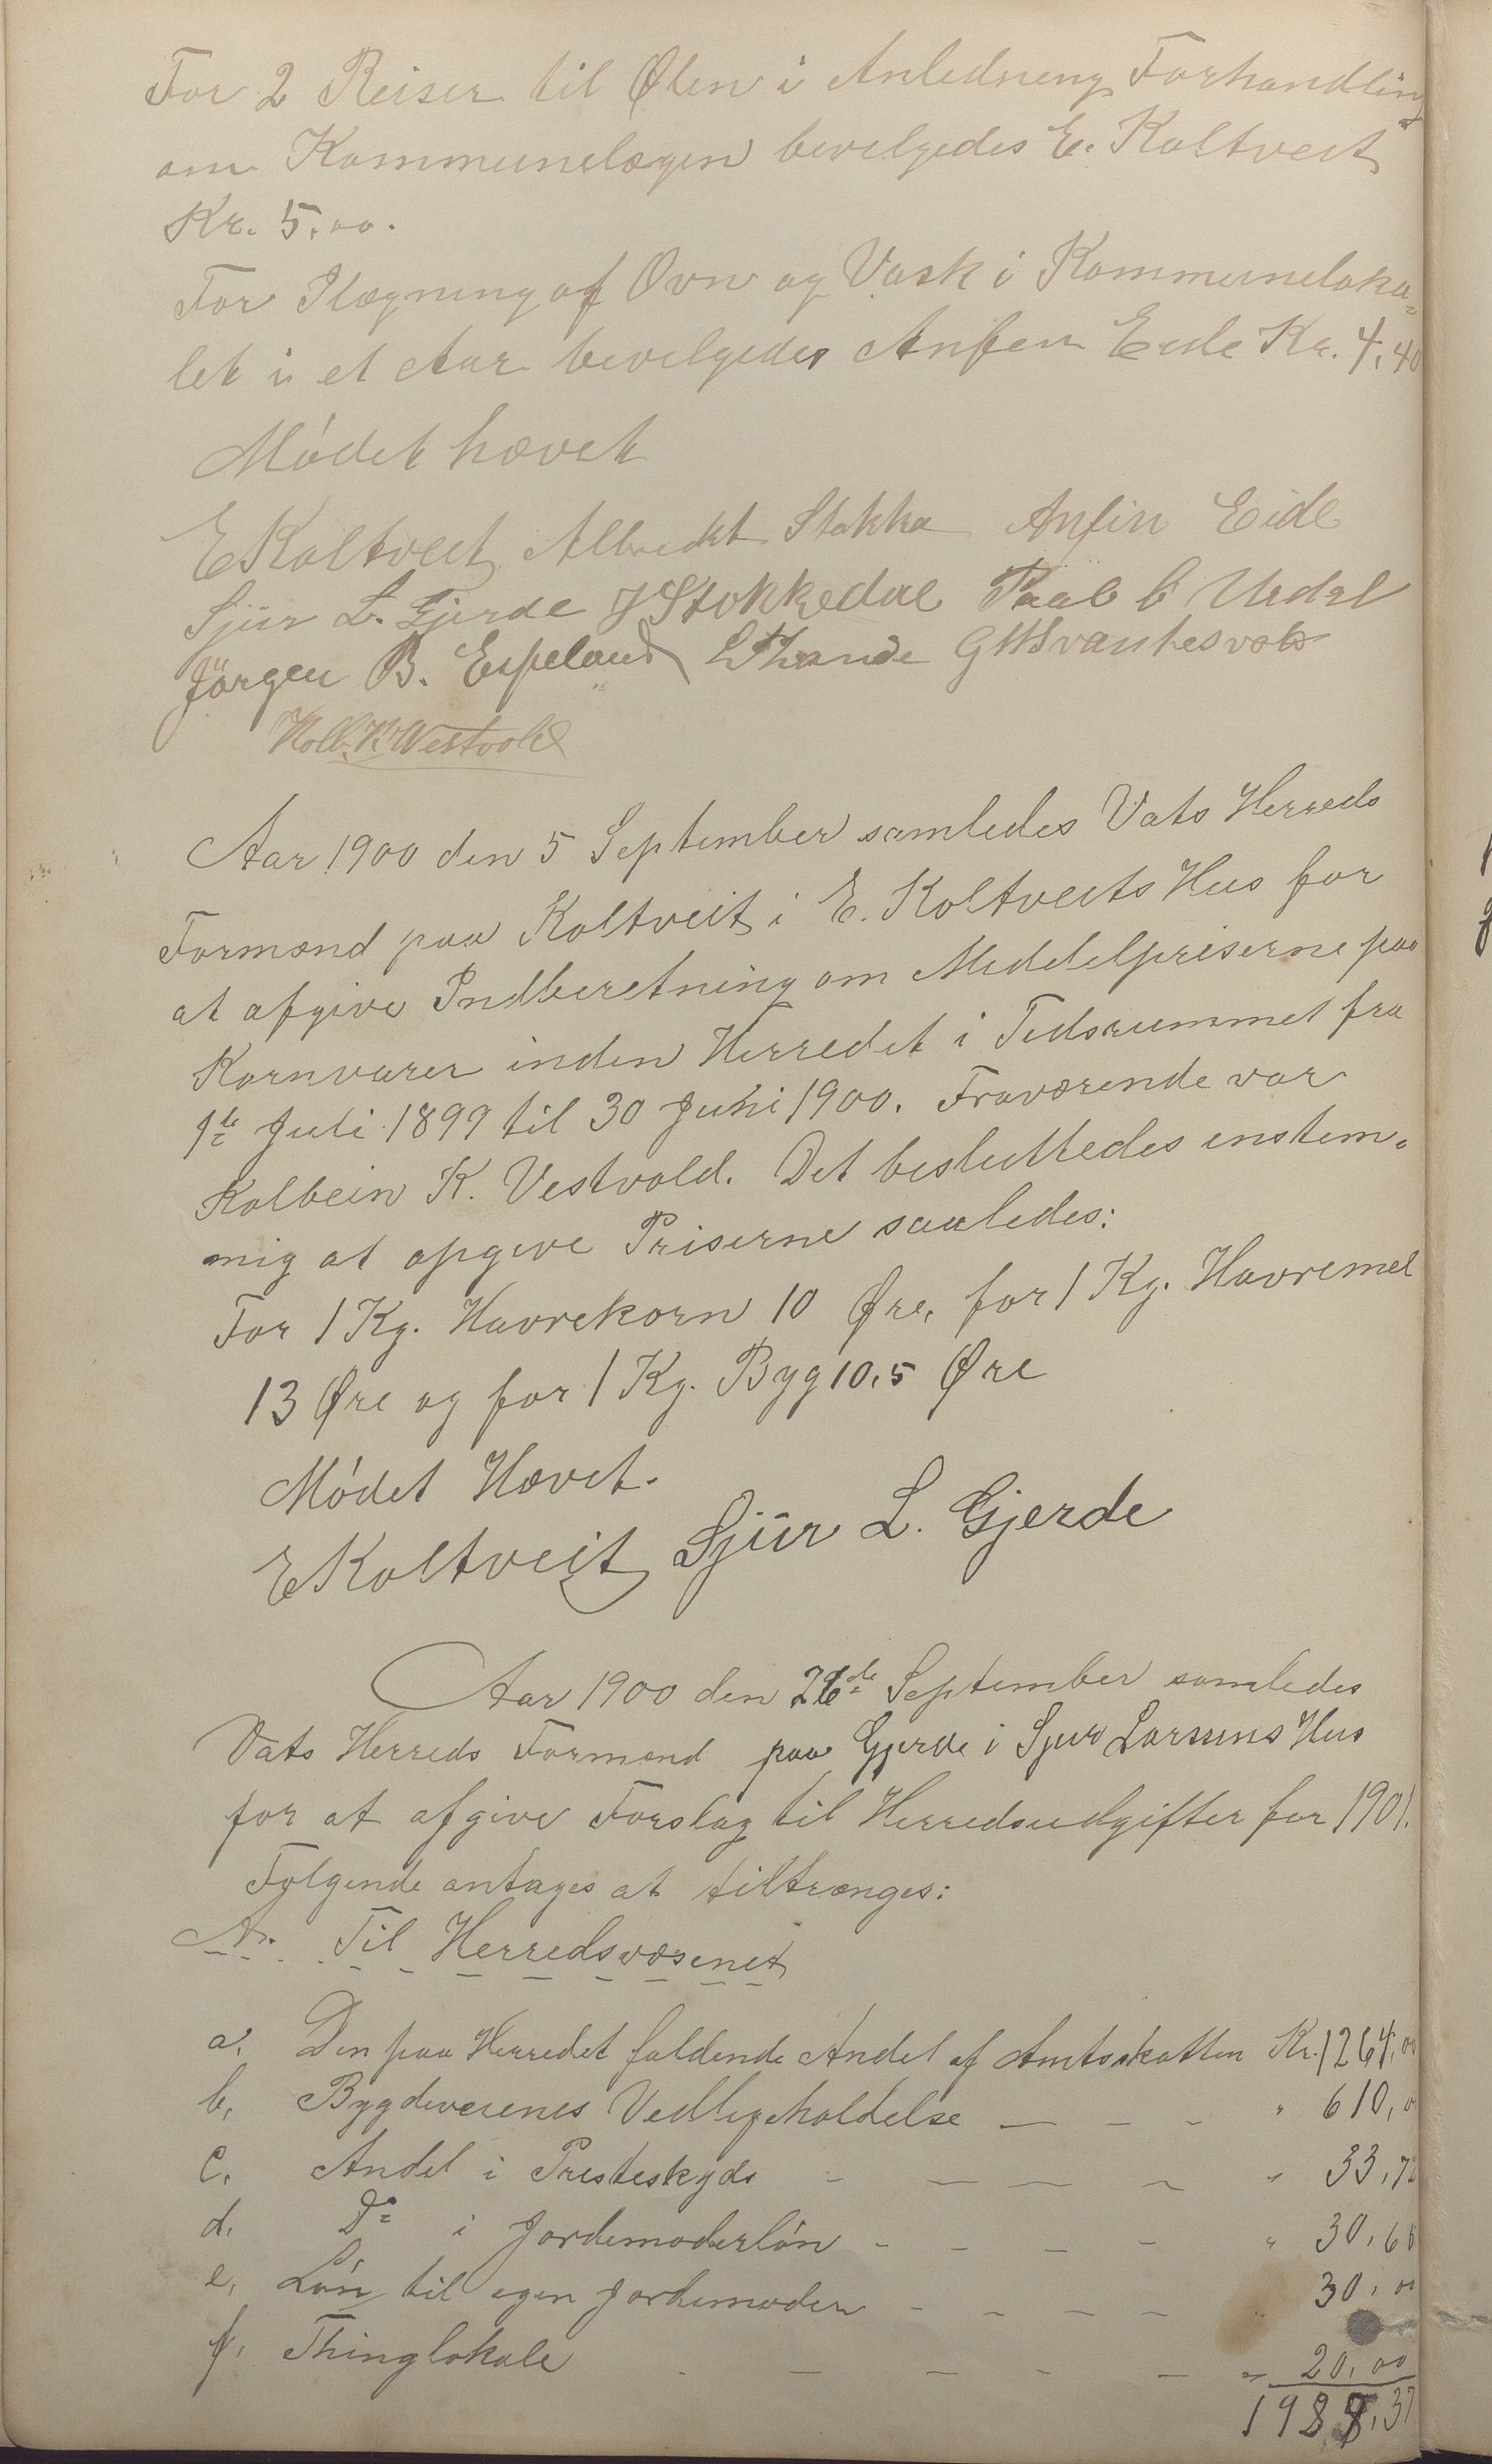 For 2 Reiser til Ølen i Anledning Forhandling
om Kommunelægen bevilgedes E. Koltveit
Kr. 5,00.
For Ilægning af Ovn og Vask i Kommuneloka-
let i et Aar bevilgedes Anfin Eide Kr. 4,40
Mødet hævet
E Koltveit Albrecht Stakka Anfin Eide
Sjur L. Gjerde J Stokkedal Paal C Urdal
Jörgen B. Espeland
Kolb. K Westvold
Aar 1900 den 5 September samledes Vats Herreds
Formænd paa Koltveit i E. Koltveits Hus for
at afgive Indberetning om Middelpriserne paa
Kornvarer inden Herredet i Tidsrummet fra
1ste Juli 1899 til 30 Juni 1900. Fraværende var
Kolbein K. Vestvold. Det besluttedes enstem-
mig at opgive Priserne saaledes:
For 1 Kg. Havrekorn 10 Øre, for 1 Kg. Havremel
13 Øre og for 1 Kg. Byg 10,5 Øre
Mødet Hævet.
E Koltveit Sjur L. Gjerde
Aar 1900 den 26de September samledes
Vats Herreds Formænd paa Gjerde i Sjur Larsens Hus
for at afgive Forslag til Herredsudgifter for 1901.
Følgende antages at tiltrænges:
A. Til Herredsvæsenet
a, Den paa Herredet faldende Andel af Amtsskatten Kr. 1264,00
b, Bygdeveienes Vedligeholdelse — - - " 610,0
c, Andel i Presteskyds - — — - " 33,72
d, Do i Jordemoderløn - - — - " 30,65
e, Løn til egen Jordemoder - - — - " 30,00
f, Thinglokale - — — - — " 20,00
1988,37